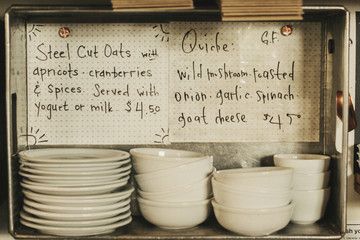 Steel Cut Oats with
apricots · cranberries
& spices. Served with
yogurt or milk. $4.50
Quiche: G.F.
wild mushroom · roasted
onion · garlic · spinach ·
goat cheese $4.50